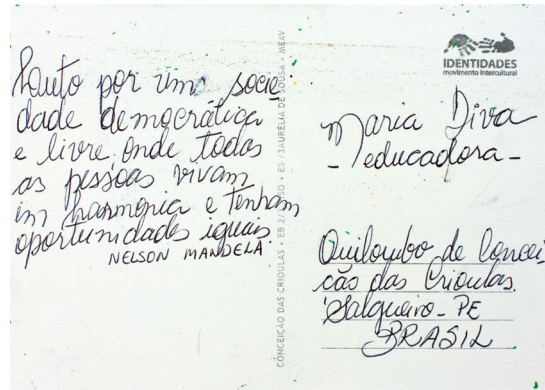 Lauto por um socie
dade democrática
e livre. onde todas
as pessoas vivam
em harmonia e tenham
oportunidades iguais.
NELSON MANDELA
CONCEIÇÃO DAS CRIOULAS • EB 2/3 • ES AURÉLIA DE SOUSA • MEAV
IDENTIDADES
movimento intercultural
Maria Diva
- educadora -
Quilombo de Concei
ção das Crioulas.
Salgueiro - PE
BRASIL